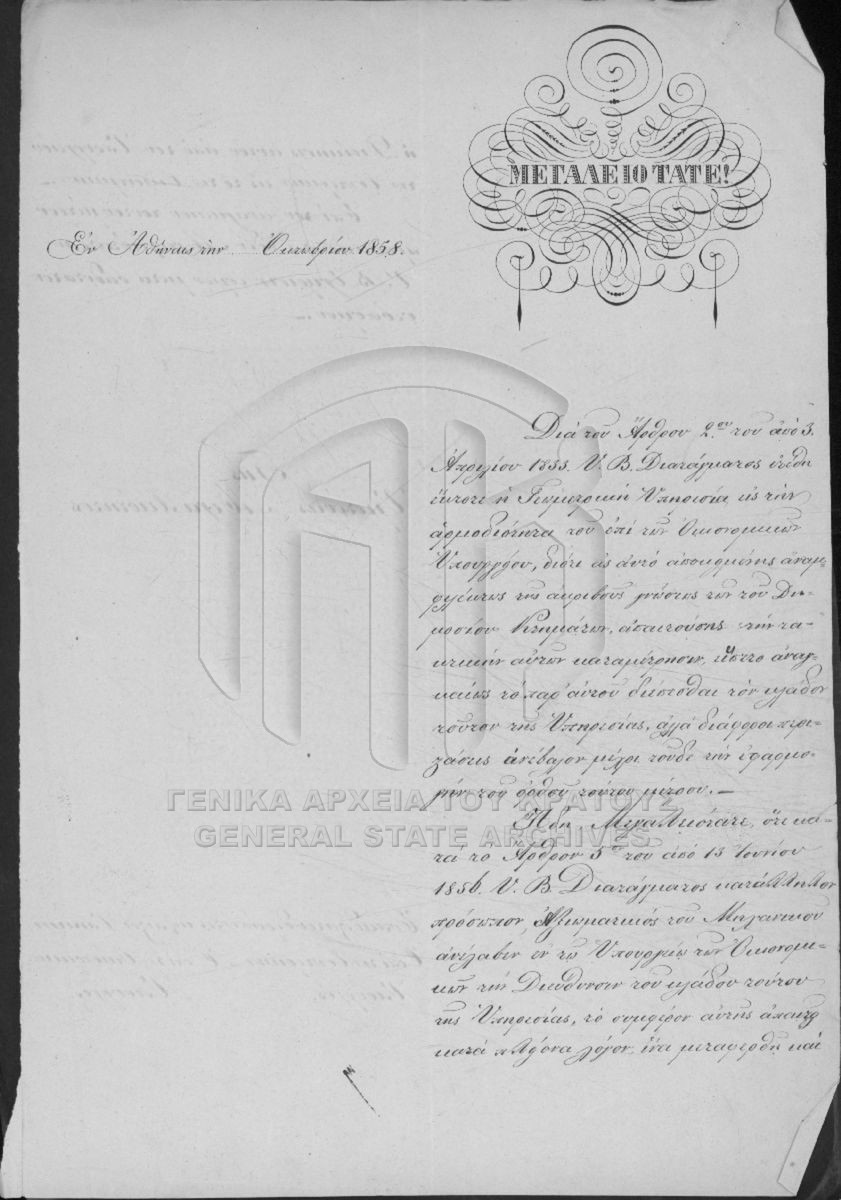 ΜΕΓΑΛΕΙΟΤΑΤΕ!
Ἐν Ἀθήναις τὴν Ὀκτωβρίου 1858.
Διὰ τοῦ Ἄρθρου 2.ου τοῦ ἀπὸ 3.
Ἀπριλίου 1833. Υ. Β. Διατάγματος ἐτέθη
ἔκτοτε ἡ Γεωμετρικὴ Ὑπηρεσία εἰς τὴν
ἁρμοδιότητα τοῦ ἐπὶ τῶν Οἰκονομικῶν
Ὑπουργείου, διότι εἰς αὐτὸ ἀποκειμένης ἀναμ-
φιλέκτως τῆς ἀκριβοῦς γνώσεως τῶν τοῦ Δη-
μοσίου Κτημάτων, ἀπαιτούσης τὴν τα-
κτικὴν αὐτῶν καταμέτρησιν, ἀναγ-
καίως τὸ παρ' αὐτοῦ διέπεσθαι τὸν κλάδον
τοῦτον τῆς Ὑπηρεσίας, ἀλλὰ διάφοροι περι-
στάσεις ἀνέβαλον μέχρι τοῦδε τὴν ἐφαρμο-
γὴν τοῦ ὀρθοῦ τούτου μέτρου.—
Ἤδη Μεγαλειότατε, ὅτε κα-
τὰ τὸ Ἄρθρον 5ον τοῦ ἀπὸ 13 Ἰουνίου
1856. Υ. Β. Διατάγματος κατάλληλον
πρόσωπον, Ἀξιωματικὸς τοῦ Μηχανικοῦ
ἀνέλαβεν ἐν τῷ Ὑπουργείῳ τῶν Οἰκονομι-
κῶν τὴν Διεύθυνσιν τοῦ κλάδου τούτου
τῆς Ὑπηρεσίας, τὸ συμφέρον αὐτῆς ἀπαιτεῖ
κατὰ πλείονα λόγον, ἵνα μεταφερθῇ καὶ
ΓΕΝΙΚΑ ΑΡΧΕΙΑ ΤΟΥ ΚΡΑΤΟΥΣ
GENERAL STATE ARCHIVES